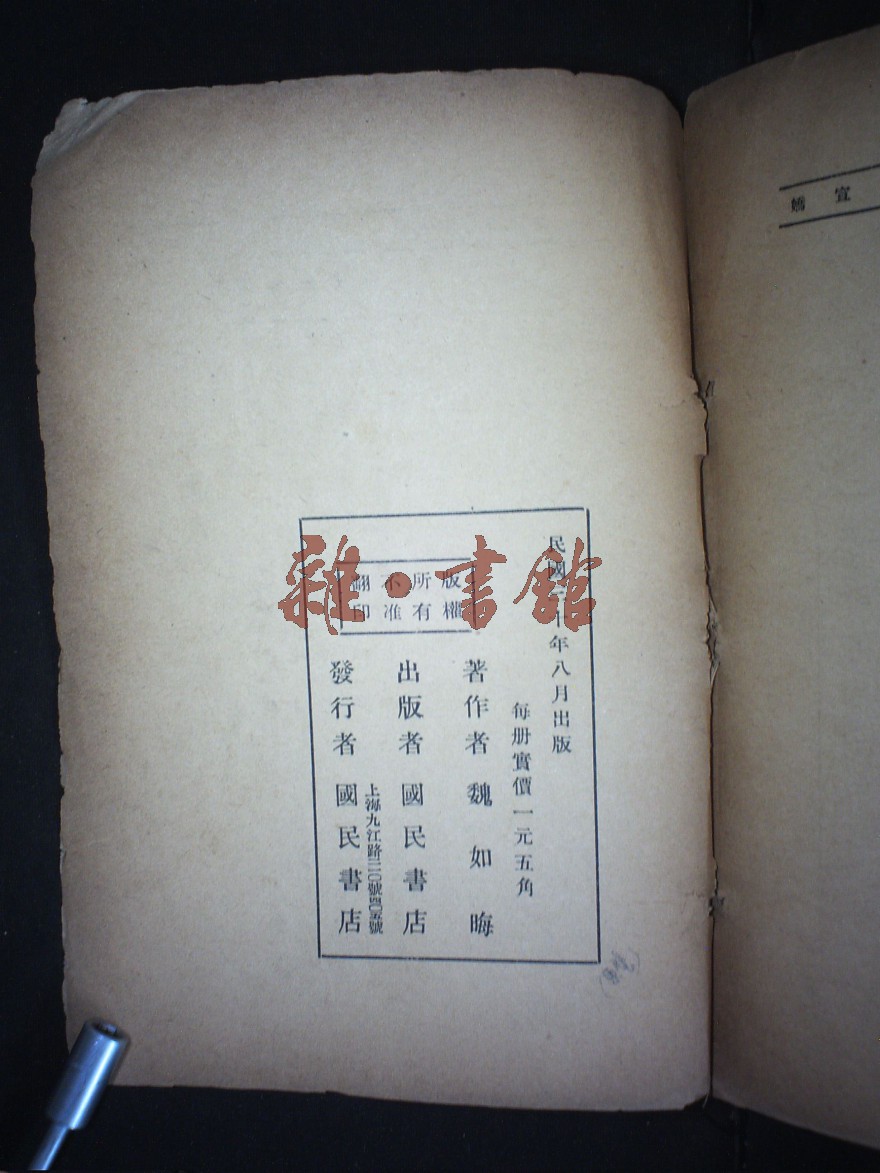 宣嬌
民國三十年八月出版
每册實價一元五角
著作者 魏如晦
出版者 國民書店
上海九江路號四〇五號
發行者 國民書店
版權
所有
不准
翻印
雜·書館